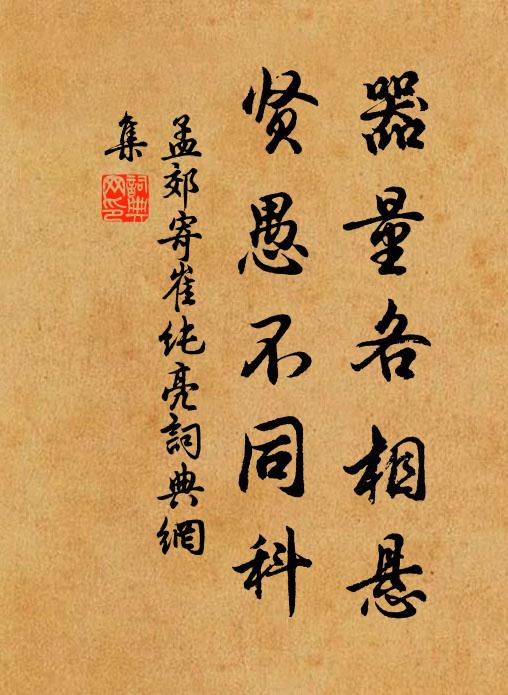 器量各相悬
贤愚不同科
孟郊寄崔纯亮詞典網
集
詞典
网印